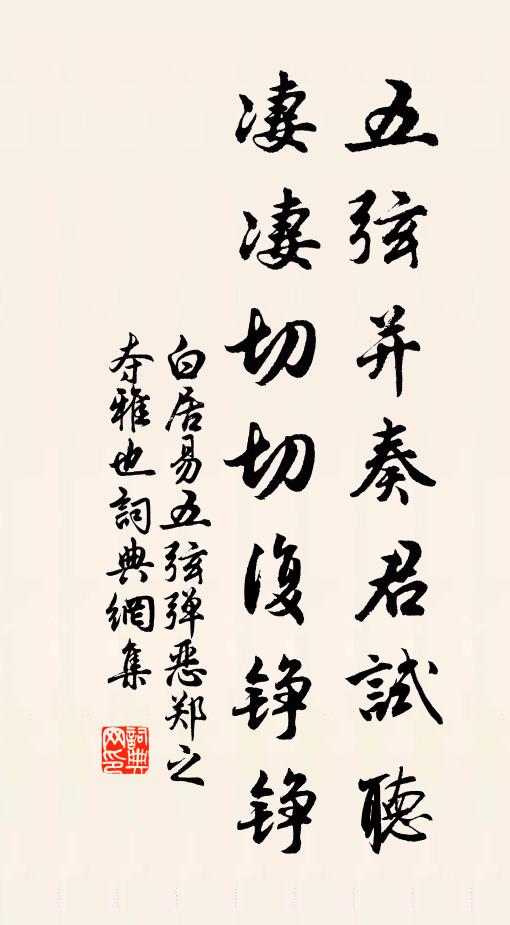 五弦并奏君試聽
凄凄切切復铮铮
白居易五弦弹惡郑之
夺雅也詞典網集
詞典
网印